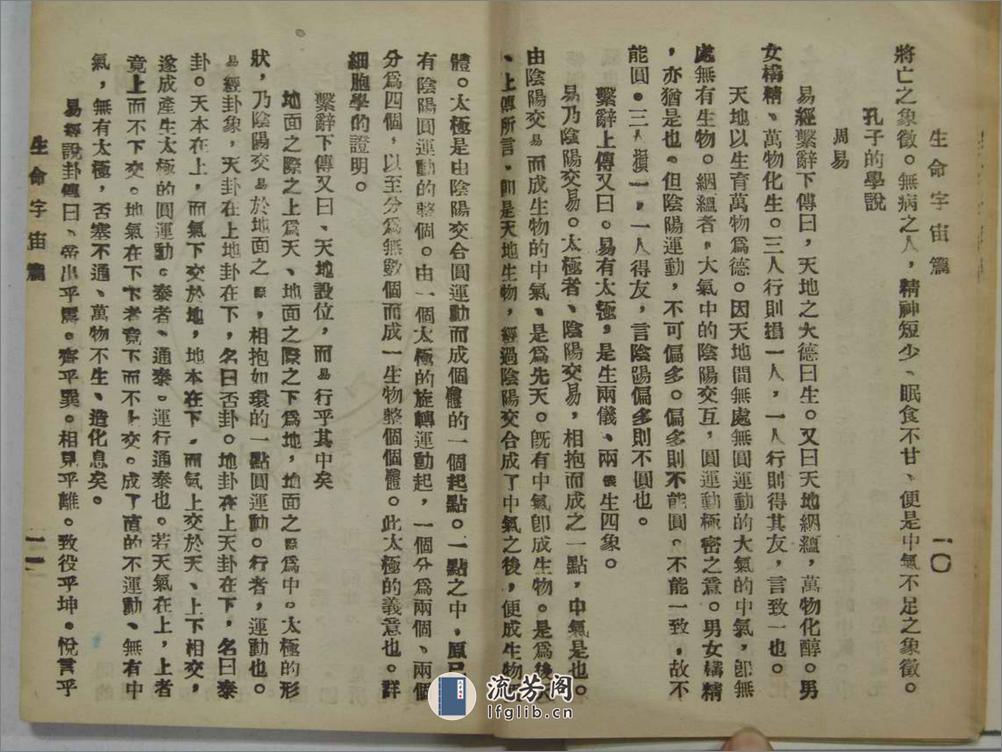 生命宇宙篇
一〇
將亡之象徵。無病之人，精神短少、眠食不甘、便是中氣不足之象徵。
孔子的學說
周易
易經繫辭下傳曰，天地之大德曰生。又曰天地絪縕，萬物化醇。男
女構精、萬物化生。三人行則損一人，一人行則得其友，言致一也。
天地以生育萬物爲德。因天地間無處無圓運動的大氣的中氣，卽無
處無有生物。絪縕者，大氣中的陰陽交互，圓運動極密之意。男女構精
，亦猶是也。但陰陽運動，不可偏多。偏多則不能圓。不能一致，故不
能圓。三人損一，一人得友，言陰陽偏多則不圓也。
繫辭上傳又曰。易有太極，是生兩儀、兩儀生四象。
易乃陰陽交易。太極者、陰陽交易，相抱而成之一點，中氣是也。
由陰陽交易而成生物的中氣、是爲先天。旣有中氣卽成生物。是爲後天
、上傳所言．卽是天地生物，經過陰陽交合成了中氣之後，便成生物
體。太極是由陰陽交合圓運動而成個體的一個起點。一點之中，原已
有陰陽圓運動的整個。由一個太極的旋轉運動起，一個分爲兩個、兩個
分爲四個，以至分爲無數個而成一生物整個個體。此太極的義意也。詳
細胞學的證明。
繫辭下傳又曰、天地設位，而易行乎其中矣
地面之際之上爲天、地面之際之下爲地，地面之際爲中。太極的形
狀，乃陰陽交易於地面之際，相抱如環的一點圓運動。行者，運動也。
易經卦象，天卦在上地卦在下，名曰否卦。地卦在上天卦在下，名曰泰
卦。天本在上，而氣下交於地，地本在下，而氣上交於天、上下相交，
遂成產生太極的圓運動。泰者、通泰。運行通泰也。若天氣在上，上者
竟上而不下交。地氣在下下者竟下而不上交。成了直的不運動、無有中
氣，無有太極，否塞不通、萬物不生、造化息矣。
易經說卦傳曰、帝出乎震。齊乎巽。相見乎離。致役乎坤。悅言乎
生命宇宙篇
一一
流芳阁
lfglib.cn